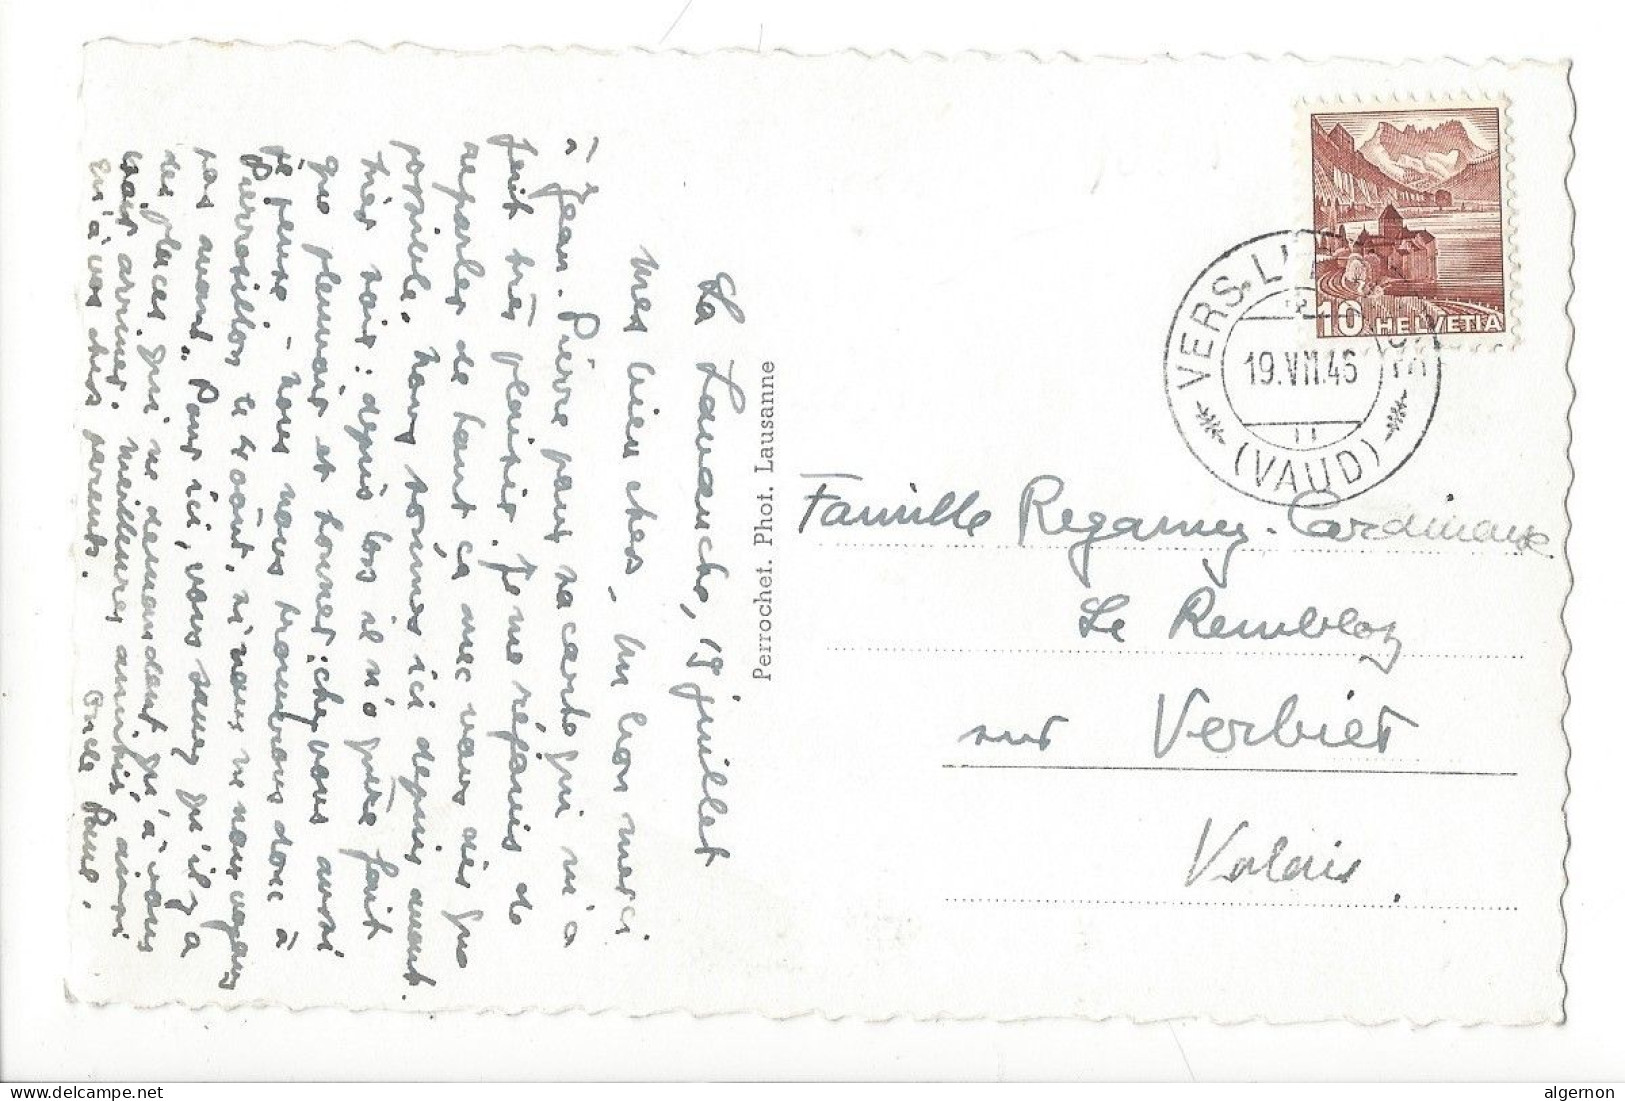 La Lavanche, 19 juillet
Mes bien chers, Un bon merci
à Jean-Pierre pour sa carte qui m'a
fait très plaisir. Je me réjouis de
reparler de tout ça avec vous dès que
possible. Nous sommes ici depuis avant
hier soir: depuis lors il n'a guère fait
que pleuvoir et tonner: chez vous aussi
je pense - nous nous trouverons donc à
Pierrosillon le 4 août, si nous ne nous voyons
pas avant. Pour ici, vous savez qu'il y a
des places qui ne demandent qu'à vous
voir arriver. meilleures amitiés, aussi
à vos chers parents.
Oncle Paul.
Perrochet. Phot. Lausanne
10 HELVETIA
VERS-L'
19.VII.46
(VAUD)
Famille Regamey-Cardinaux
Le Rembloz
sur Verbier
Valais.
www.delcampe.net
algernon